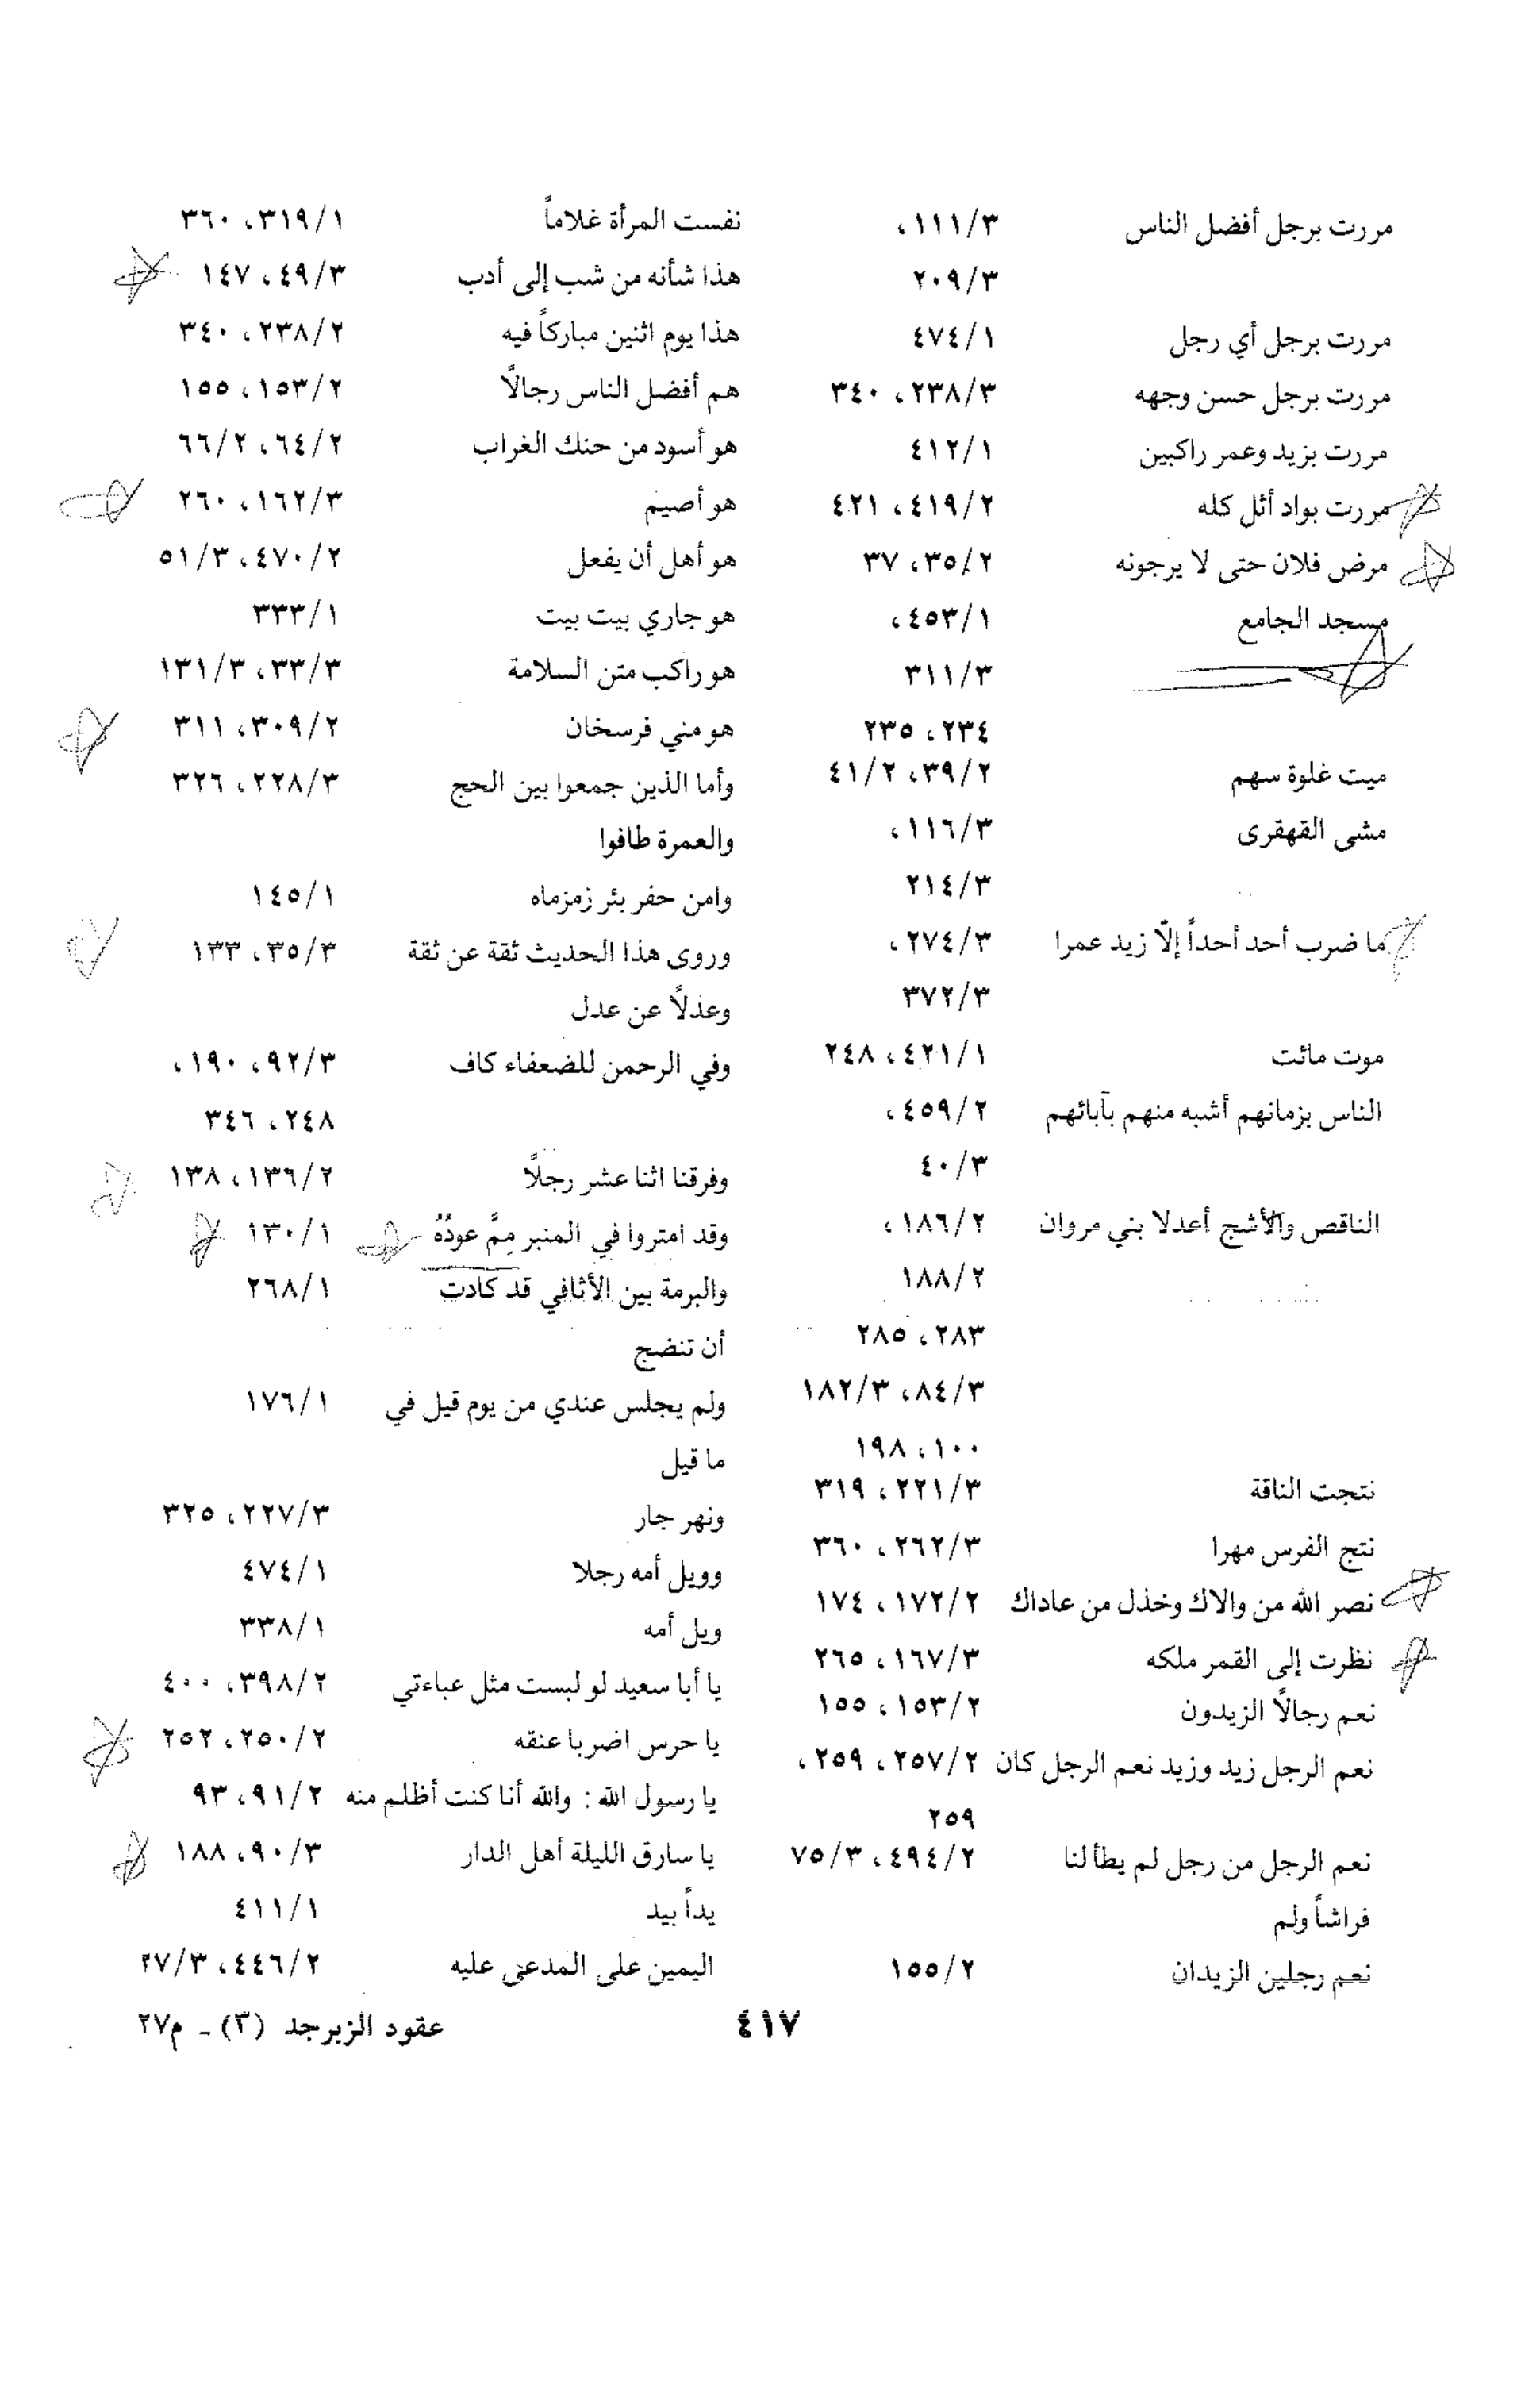 مررت برجل أفضل الناس ٣/١١١،
٣/٢٠٩
مررت برجل أي رجل ١/٤٧٤
مررت برجل حسن وجهه ٣/٢٣٨، ٣٤٠
مررت بزيد وعمر راكبين ١/٤١٢
مررت بواد أثل كله ٢/٤١٩، ٤٢١
مرض فلان حتى لا يرجونه ٢/٣٥، ٣٧
مسجد الجامع ١/٤٥٣،
٣/٣١١
٢٣٤، ٢٣٥
ميت غلوة سهم ٢/٣٩، ٢/٤١
مشى القهقرى ٣/١١٦،
٣/٢١٤
ما ضرب أحد أحداً إلّا زيد عمرا ٣/٢٧٤،
٣/٣٧٢
موت مائت ١/٤٢١، ٢٤٨
الناس بزمانهم أشبه منهم بآبائهم ٢/٤٥٩،
٣/٤٠
الناقص والأشج أعدلا بني مروان ٢/١٨٦،
٢/١٨٨
٢٨٣، ٢٨٥
٣/٨٤، ٣/١٨٢
١٠٠، ١٩٨
نتجت الناقة ٣/٢٢١، ٣١٩
نتج الفرس مهرا ٣/٢٦٢، ٣٦٠
نصر الله من والاك وخذل من عاداك ٢/١٧٢، ١٧٤
نظرت إلى القمر ملكه ٣/١٦٧، ٢٦٥
نعم رجالًا الزيدون ٢/١٥٣، ١٥٥
نعم الرجل زيد وزيد نعم الرجل كان ٢/٢٥٧، ٢٥٩،
٢٥٩
نعم الرجل من رجل لم يطأ لنا ٢/٤٩٤، ٣/٧٥
فراشاً ولم
نعم رجلين الزيدان ٢/١٥٥
نفست المرأة غلاماً ١/٣١٩، ٣٦٠
هذا شأنه من شب إلى أدب ٣/٤٩، ١٤٧
هذا يوم اثنين مباركاً فيه ٢/٢٣٨، ٣٤٠
هم أفضل الناس رجالًا ٢/١٥٣، ١٥٥
هو أسود من حنك الغراب ٢/٦٤، ٢/٦٦
هو أصيم ٣/١٦٢، ٢٦٠
هو أهل أن يفعل ٢/٤٧٠، ٣/٥١
هو جاري بيت بيت ١/٣٣٣
هو راكب متن السلامة ٣/٣٣، ٣/١٣١
هو مني فرسخان ٢/٣٠٩، ٣١١
وأما الذين جمعوا بين الحج ٣/٢٢٨، ٣٢٦
والعمرة طافوا
وامن حفر بئر زمزماه ١/١٤٥
وروى هذا الحديث ثقة عن ثقة ٣/٣٥، ١٣٣
وعدلًا عن عدل
وفي الرحمن للضعفاء كاف ٣/٩٢، ١٩٠،
٢٤٨، ٣٤٦
وفرقنا اثنا عشر رجلًا ٢/١٣٦، ١٣٨
وقد امتروا في المنبر مِمَّ عودُهُ ١/١٣٠
والبرمة بين الأثافي قد كادت ١/٢٦٨
أن تنضج
ولم يجلس عندي من يوم قيل في ١/١٧٦
ما قيل
ونهر جار ٣/٢٢٧، ٣٢٥
وويل أمه رجلا ١/٤٧٤
ويل أمه ١/٣٣٨
يا أبا سعيد لو لبست مثل عباءتي ٢/٣٩٨، ٤٠٠
يا حرس اضربا عنقه ٢/٢٥٠، ٢٥٢
يا رسول الله : والله أنا كنت أظلم منه ٢/٩١، ٩٣
يا سارق الليلة أهل الدار ٣/٩٠، ١٨٨
يداً بيد ١/٤١١
اليمين على المدعى عليه ٢/٤٤٦، ٣/٢٧
٤١٧
عقود الزبرجد (٣) ـ م٢٧